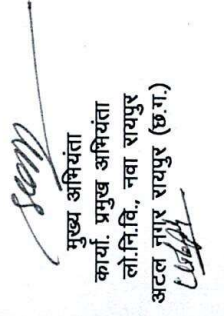 मुख्य अभियंता
कार्या. प्रमुख अभियंता
लो.नि.वि., नवा रायपुर
अटल नगर रायपुर (छ.ग.)